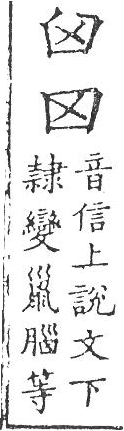 囟
音信上說文下
隸變巤腦等